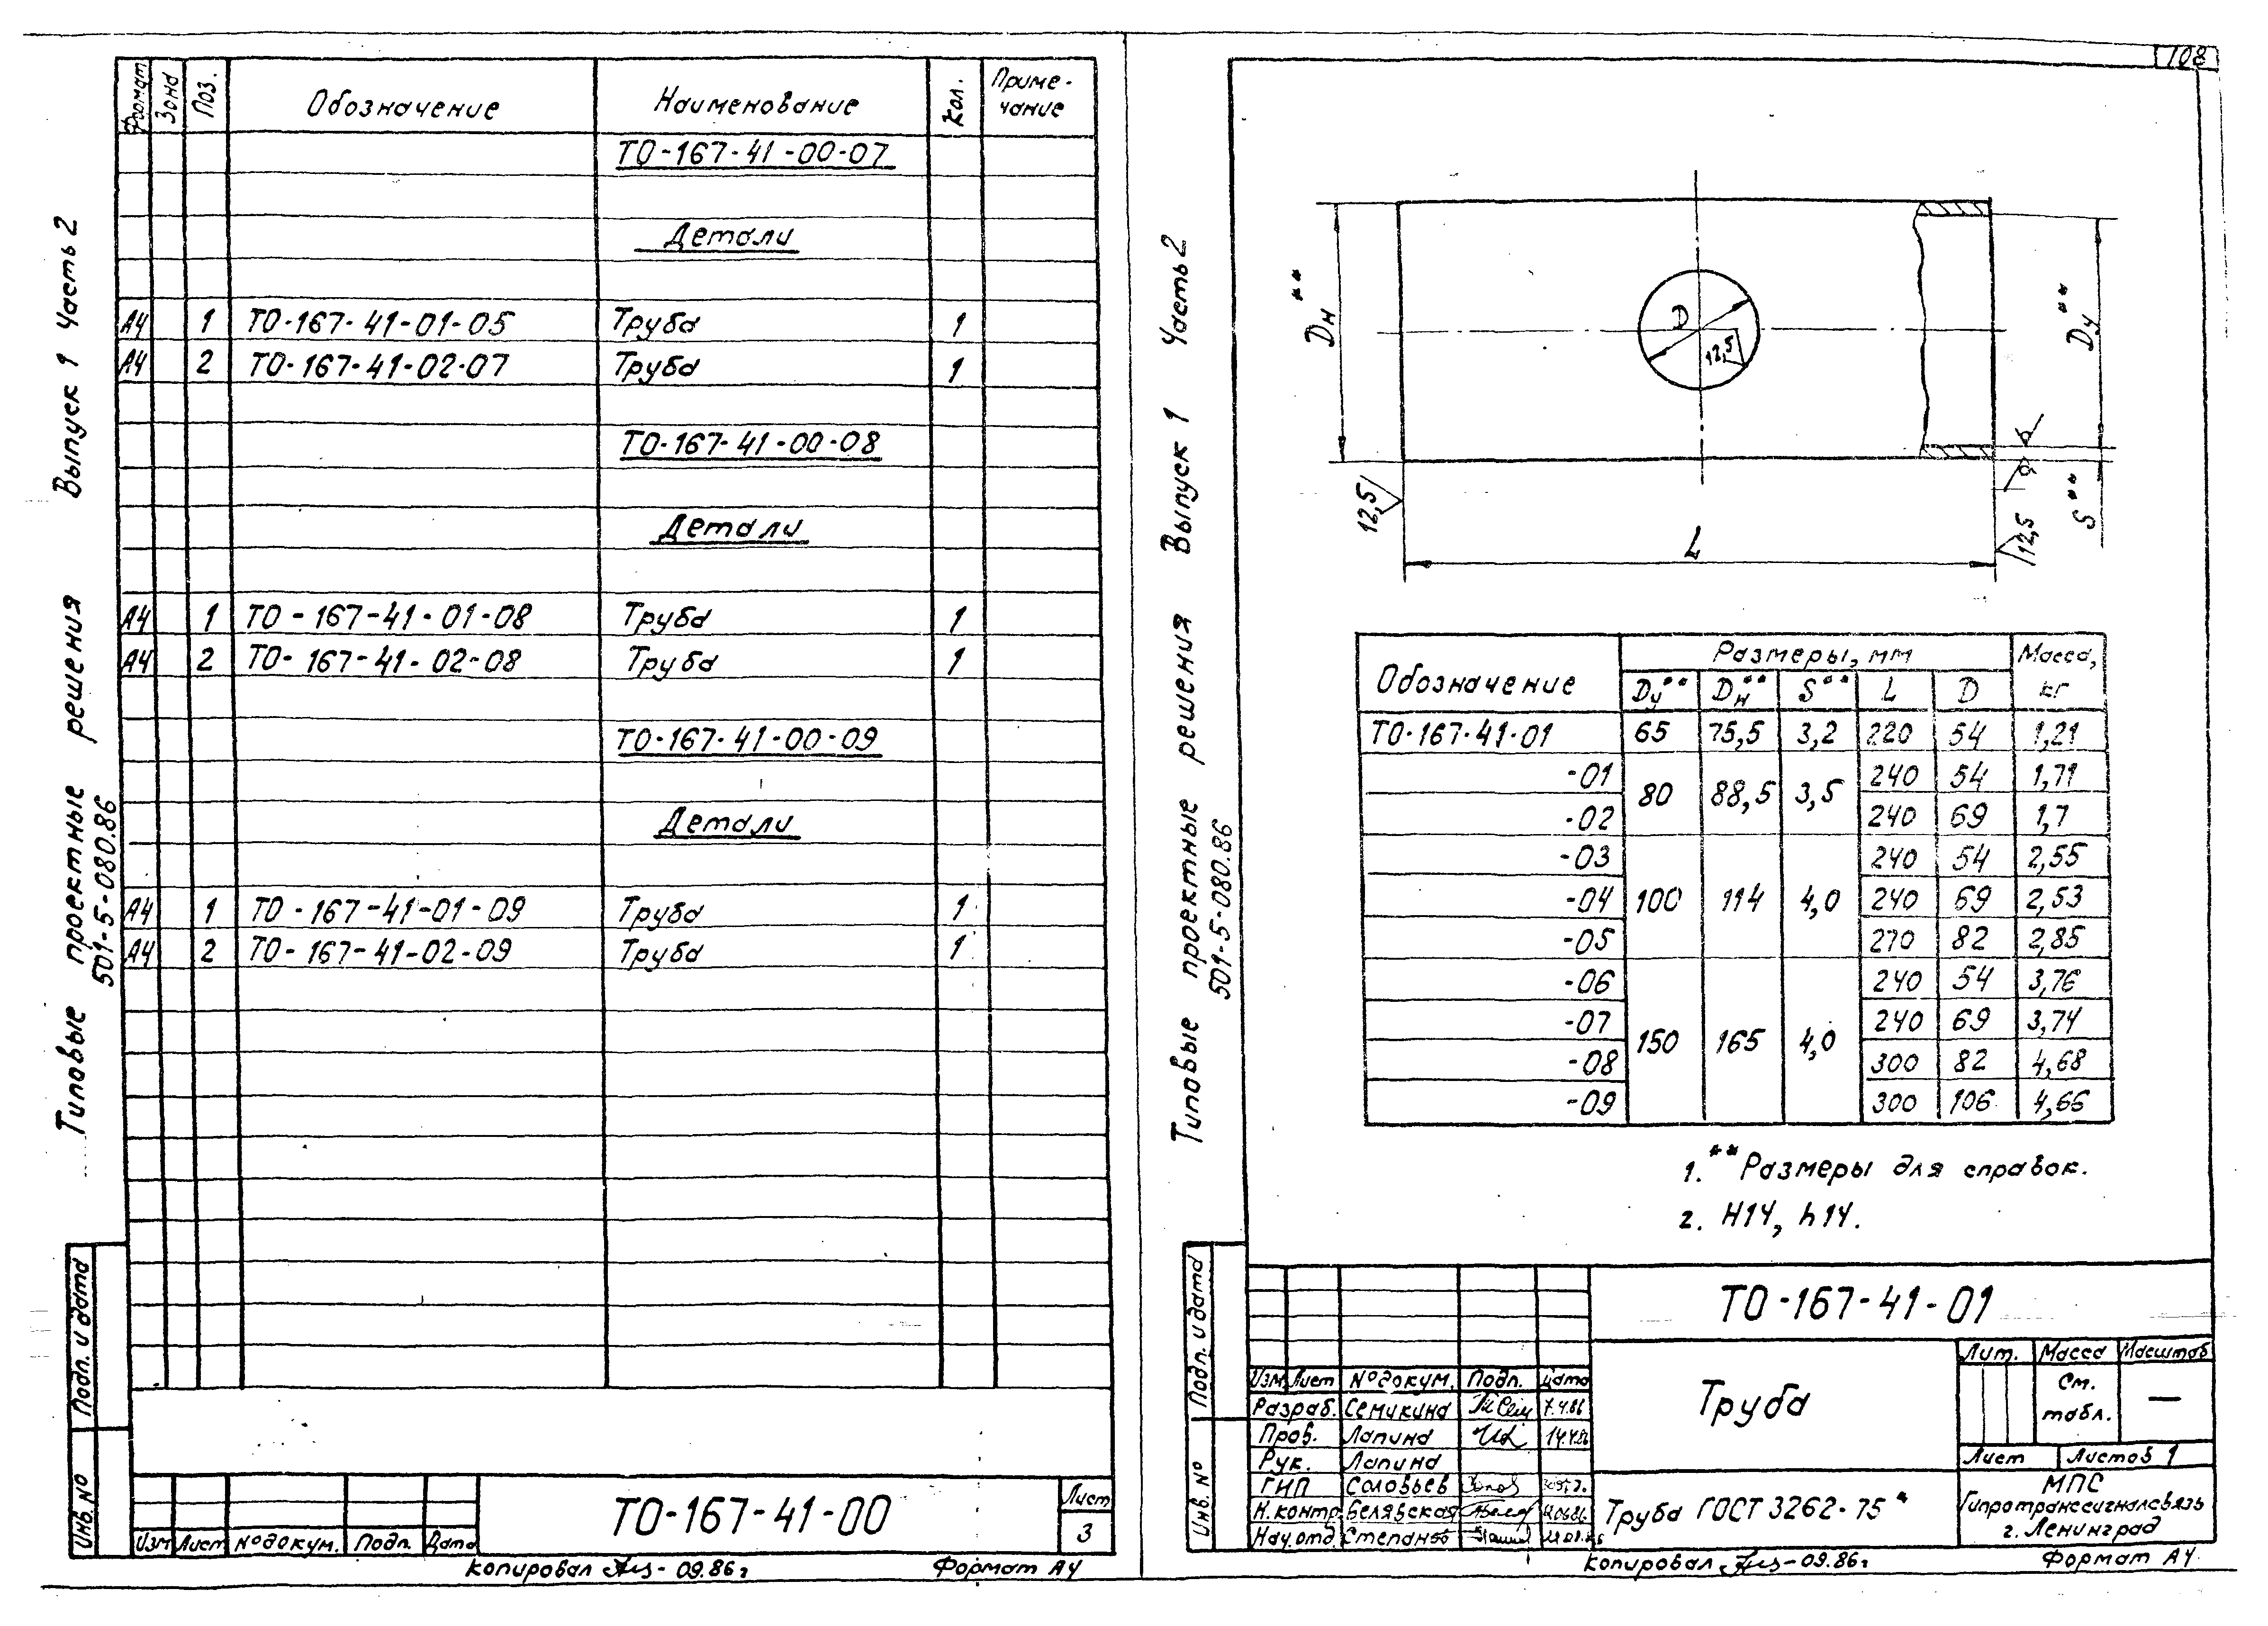 Типовые проектные решения Выпуск 1 Часть 2
501-5-080.86
Формат Зона Поз. Обозначение Наименование Кол. Приме-
чание
ТО-167-41-00-07
Детали
А4 1 ТО-167-41-01-05 Труба 1
А4 2 ТО-167-41-02-07 Труба 1
ТО-167-41-00-08
Детали
А4 1 ТО-167-41-01-08 Труба 1
А4 2 ТО-167-41-02-08 Труба 1
ТО-167-41-00-09
Детали
А4 1 ТО-167-41-01-09 Труба 1
А4 2 ТО-167-41-02-09 Труба 1
Подп. и дата
Инв. №
Изм Лист № докум. Подп. Дата
ТО-167-41-00
Лист
3
Копировал 09.86г Формат А4
108
Типовые проектные решения Выпуск 1 Часть 2
501-5-080.86
Dн**
D
12,5
Dу**
S**
12,5
12,5
L
Обозначение Размеры, мм Масса,
кг
Dу** Dн** S** L D
ТО-167-41-01 65 75,5 3,2 220 54 1,21
-01 80 88,5 3,5 240 54 1,71
-02 240 69 1,7
-03 240 54 2,55
-04 100 114 4,0 240 69 2,53
-05 270 82 2,85
-06 240 54 3,76
-07 150 165 4,0 240 69 3,74
-08 300 82 4,68
-09 300 106 4,66
1. ** Размеры для справок.
2. Н14, h14.
Подп. и дата
Инв. №
ТО-167-41-01
Изм Лист № докум. Подп. Дата
Разраб. Семикина 7.4.86
Пров. Лапина 14.4.86
Рук. Лапина
ГИП Соловьев
Н.контр. Белявская
Нач.отд. Степанов
Труба
Лит. Масса Масштаб
См.
табл. —
Лист Листов 1
Труба ГОСТ 3262-75*
МПС
Гипротранссигналсвязь
г. Ленинград
Копировал 09.86г Формат А4